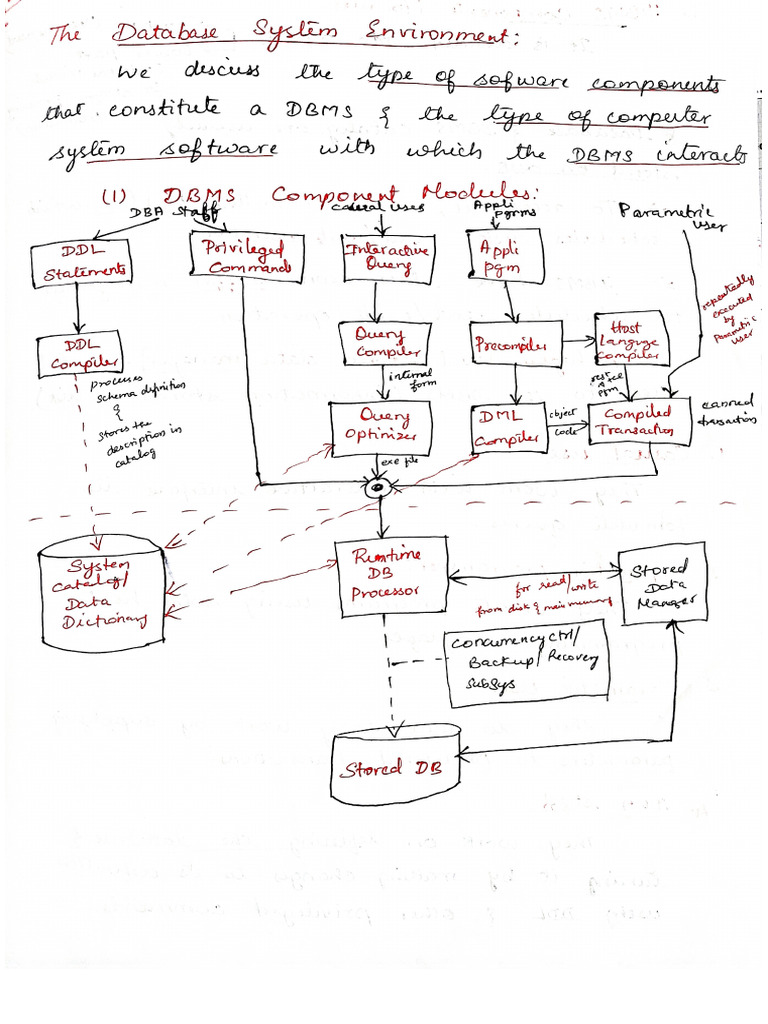 The Database System Environment:
We discuss the type of sofware components
that constitute a DBMS & the type of computer
system software with which the DBMS interacts
(1) DBMS Component Modules:
DBA Staff
Casual Uses
Appli
pgrms
Parametric
user
DDL
Statements
Privileged
Commands
Interactive
Query
Appli
pgm
repeatedly
executed
by
Parametric
user
DDL
Compiler
Query
Compiler
Precompiler
Host
Language
Compiler
processes
schema definition
&
stores the
description in
catalog
internal
form
rest
of the
pgm
Query
Optimizer
DML
Compiler
object
code
Compiled
Transaction
canned
transaction
exe file
System
Catalog/
Data
Dictionary
Runtime
DB
Processor
for read/write
from disk & main memory
Stored
Data
Manager
Concurrency Ctrl/
Backup/Recovery
SubSys
Stored DB